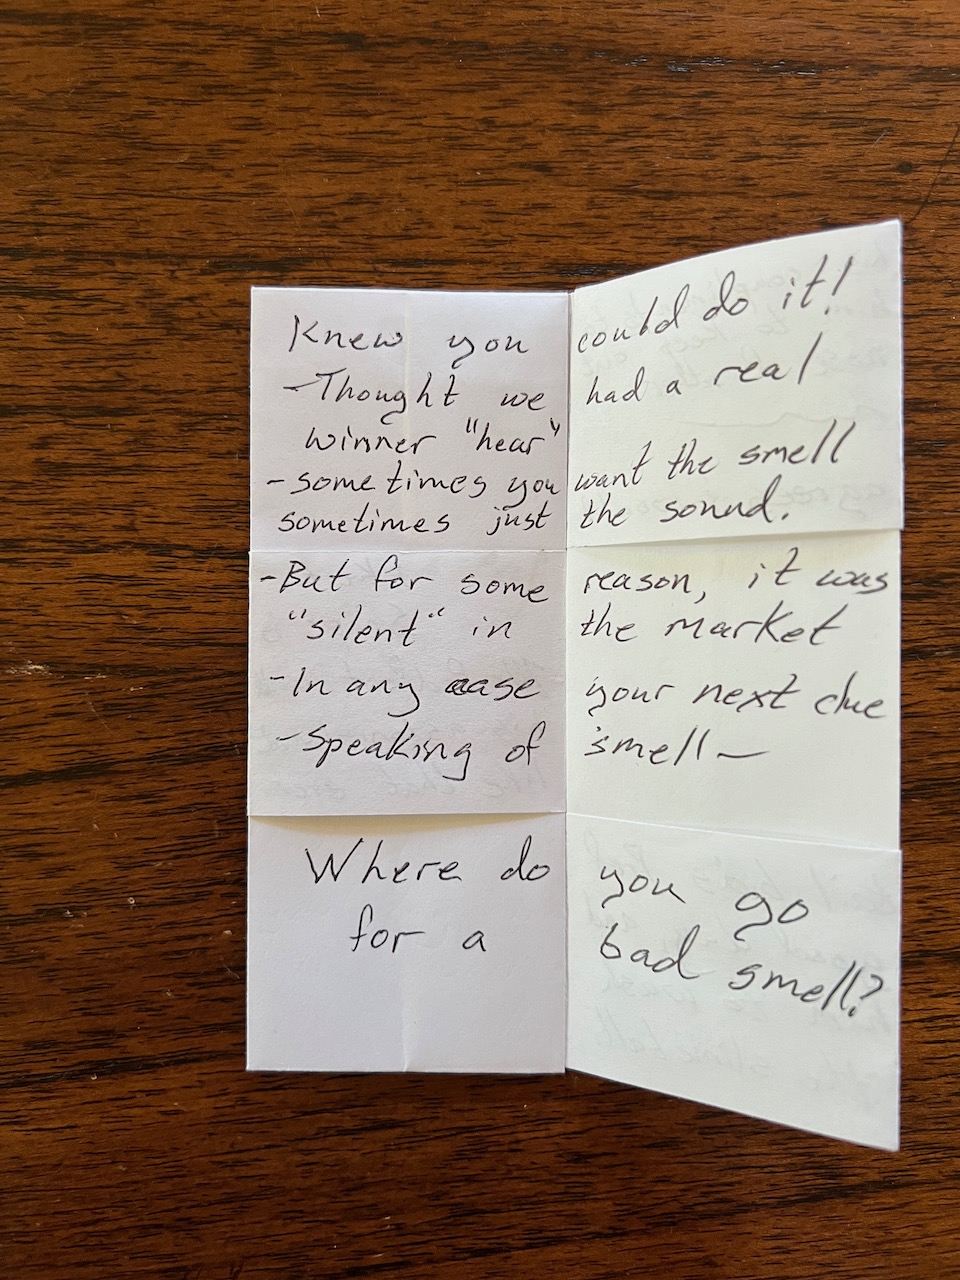 Knew you could do it!
- Thought we had a real
winner "hear"
- sometimes you want the smell
sometimes just the sound.
- But for some reason, it was
"silent" in the market
- In any case your next clue
- Speaking of smell—
Where do you go
for a bad smell?